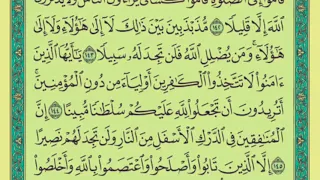 قَامُوٓا۟ إِلَى ٱلصَّلَوٰةِ قَامُوا۟ كُسَالَىٰ يُرَآءُونَ ٱلنَّاسَ وَلَا يَذْكُرُونَ
ٱللَّهَ إِلَّا قَلِيلًا ١٤٢ مُّذَبْذَبِينَ بَيْنَ ذَٰلِكَ لَآ إِلَىٰ هَـٰٓؤُلَآءِ وَلَآ إِلَىٰ
هَـٰٓؤُلَآءِ وَمَن يُضْلِلِ ٱللَّهُ فَلَن تَجِدَ لَهُۥ سَبِيلًا ١٤٣ يَـٰٓأَيُّهَا ٱلَّذِينَ
ءَامَنُوا۟ لَا تَتَّخِذُوا۟ ٱلْكَـٰفِرِينَ أَوْلِيَآءَ مِن دُونِ ٱلْمُؤْمِنِينَ
أَتُرِيدُونَ أَن تَجْعَلُوا۟ لِلَّهِ عَلَيْكُمْ سُلْطَـٰنًا مُّبِينًا ١٤٤ إِنَّ
ٱلْمُنَـٰفِقِينَ فِى ٱلدَّرْكِ ٱلْأَسْفَلِ مِنَ ٱلنَّارِ وَلَن تَجِدَ لَهُمْ نَصِيرًا
١٤٥ إِلَّا ٱلَّذِينَ تَابُوا۟ وَأَصْلَحُوا۟ وَٱعْتَصَمُوا۟ بِٱللَّهِ وَأَخْلَصُوا۟